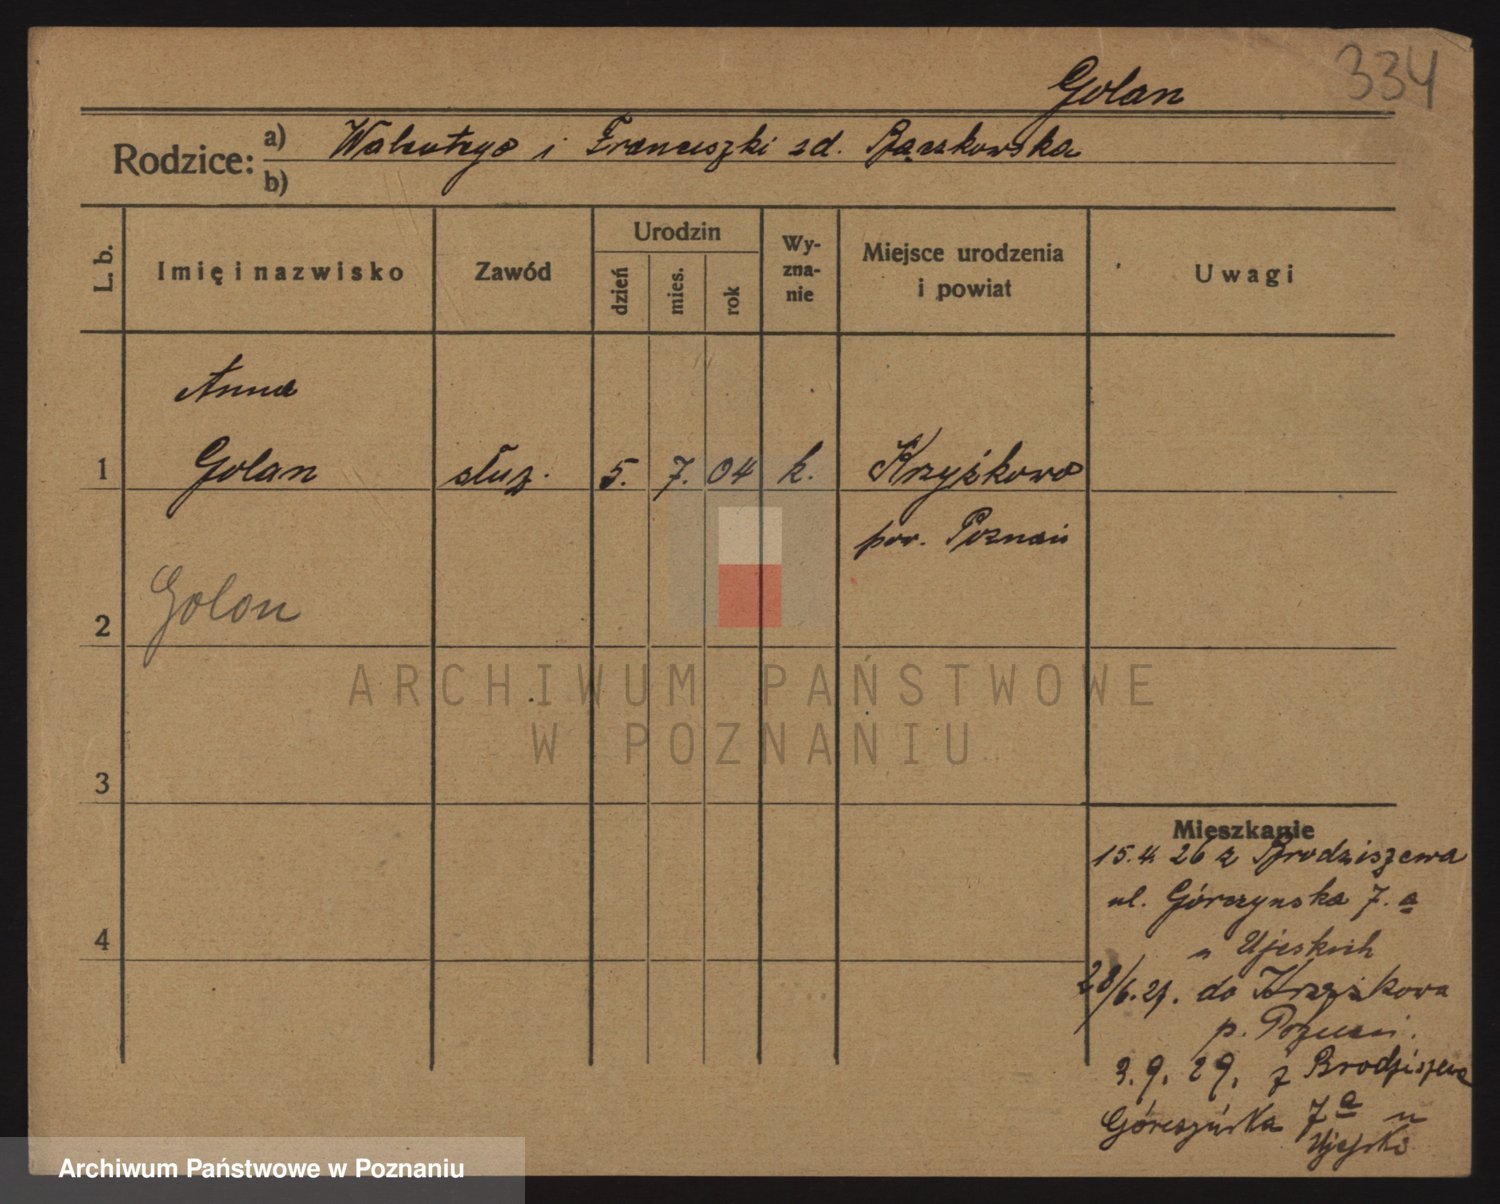 334
Golan
Rodzice:
a) Walentego i Franciszki zd. Bączkowska
b)
L. b.
Imię i nazwisko
Zawód
Urodzin
dzień
mies.
rok
Wy-
zna-
nie
Miejsce urodzenia
i powiat
Uwagi
Anna
1 Golan służ. 5. 7. 04 k. Krzyżkowo
pow. Poznań
2 Golon
3
4
Mieszkanie
15.4.26 z Brodziszewa
ul. Górczynska 7.a
u Ujeskich
28/6.29. do Krzyżkowa
p. Poznań.
3.9.29. z Brodziszewa
Górczyńska 7a u
Ujejski
ARCHIWUM PAŃSTWOWE
W POZNANIU
Archiwum Państwowe w Poznaniu